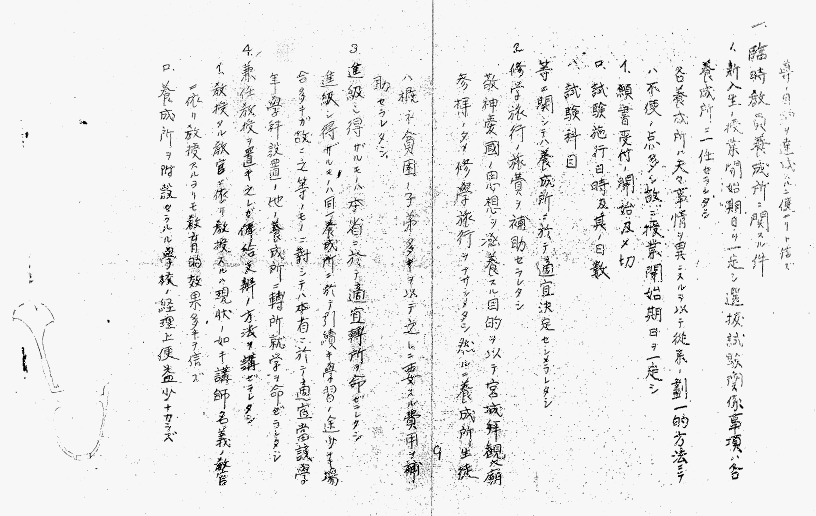 専ノ目的ヲ達成スルニ便ナリト信ズ
一、臨時教員養成所ニ関スル件
1. 新入生ノ授業開始期日ヲ一定シ選抜試験関係事項ハ各
養成所ニ一任セラレタシ
各養成所ハ夫々事情ヲ異ニスルヲ以テ従来ノ劃一的方法ニテ
ハ不便ノ点多シ故ニ授業開始期日ヲ一定シ
イ、願書受付ノ開始及〆切
ロ、試験施行日時及其ノ日数
ハ、試験科目
等ニ関シテハ養成所ニ於テ適宜決定セシメラレタシ
2. 修学旅行ノ旅費ヲ補助セラレタシ
敬神愛国ノ思想ヲ涵養スル目的ヲ以テ宮城拝観及廟
参拝ノタメ修学旅行ヲナサシメタシ然ルニ養成所生徒
ハ概ネ貧困ノ子弟多キヲ以テ之レニ要スル費用ヲ補
助セラレタシ
3. 進級シ得ザルモノハ本省ニ於テ適宜転所ヲ命ゼラレタシ
進級シ得ザルモノハ同一養成所ニ於テ引続キ学習ノ途少キ場
合多キガ故ニ之等ノモノニ対シテハ本省ニ於テ適宜当該学
年学科設置ノ他ノ養成所ニ転所就学ヲ命ゼラレタシ
4. 兼任教授ヲ置キ之レガ俸給支辨ノ方法ヲ講ゼラレタシ
イ、教授タル教官ニ依リ教授スルハ現状ノ如キ講師名義ノ教官
ニ依リ教授スルヨリモ教育的効果多キヲ信ズ
ロ、養成所ヲ附設セラルル学校ノ経理上便益少ナカラズ
9